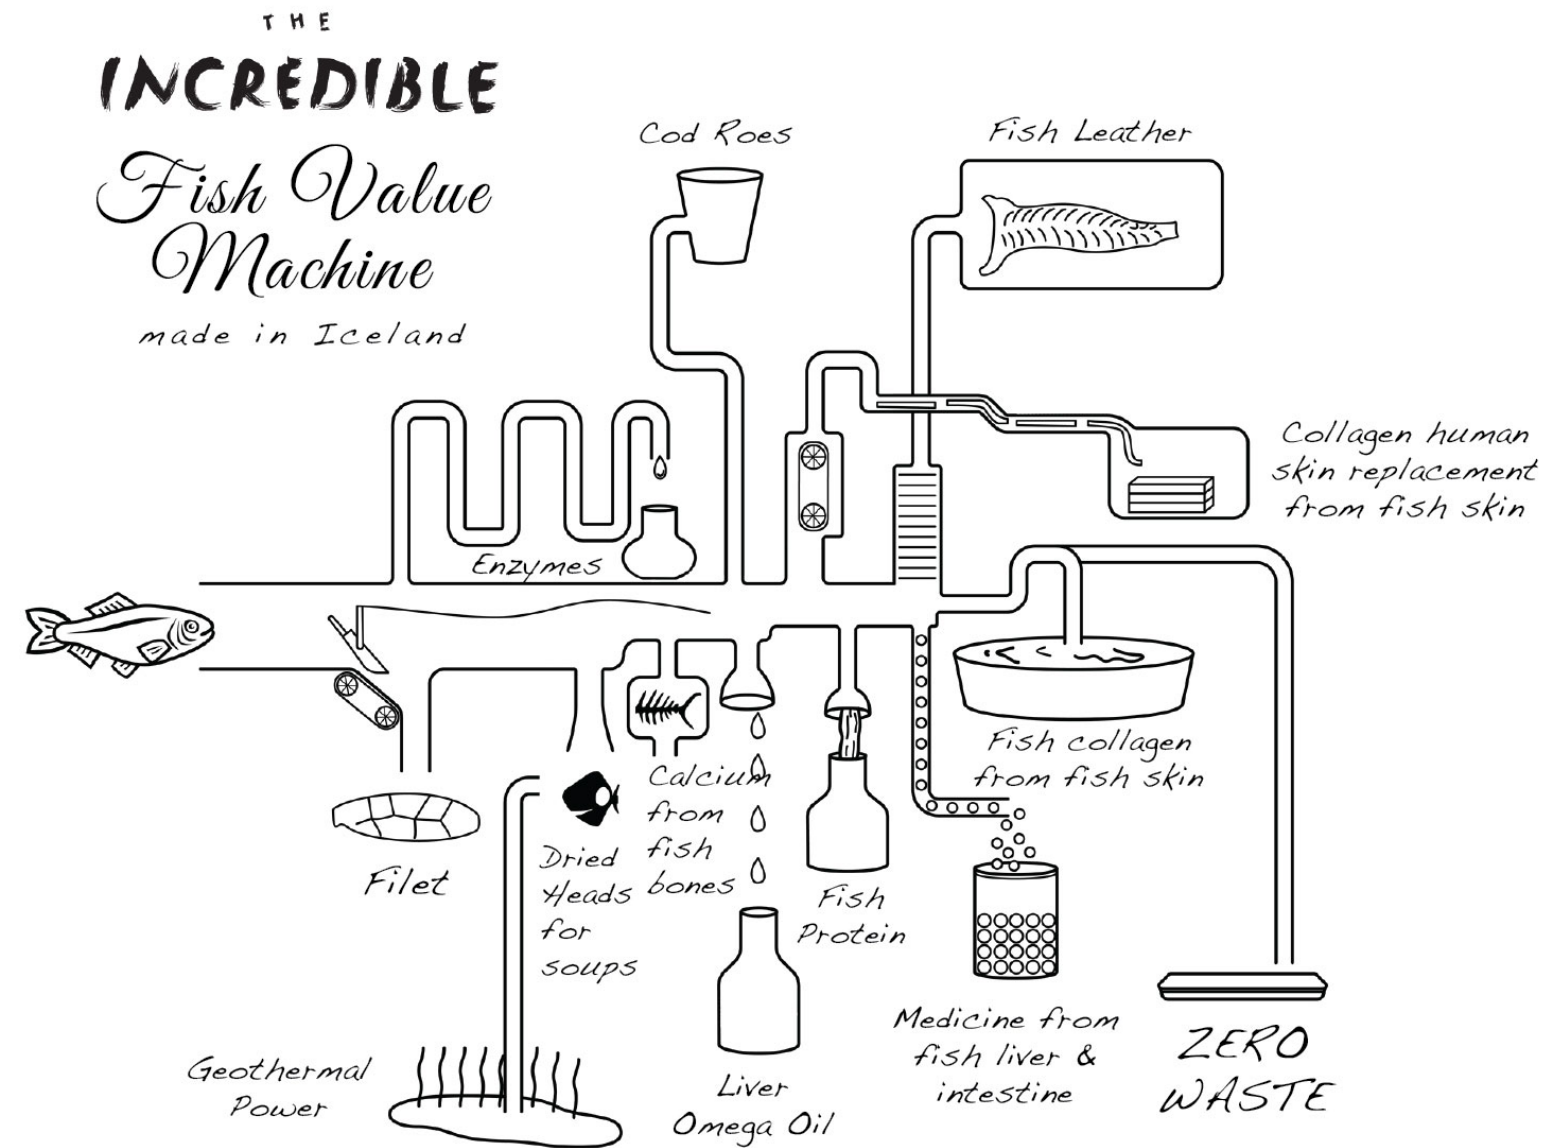 THE
INCREDIBLE
Fish Value
Machine
made in Iceland
Cod Roes
Fish Leather
Collagen human
skin replacement
from fish skin
Enzymes
Fish collagen
from fish skin
Filet
Dried
Heads
for
soups
Calcium
from
fish
bones
Fish
Protein
Liver
Omega Oil
Medicine from
fish liver &
intestine
ZERO
WASTE
Geothermal
Power